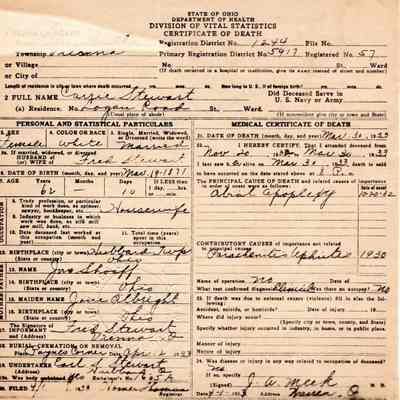 STATE OF OHIO
DEPARTMENT OF HEALTH
DIVISION OF VITAL STATISTICS
CERTIFICATE OF DEATH
Registration District No. 1244 File No.
Township Vienna Primary Registration District No. 5917 Registered No. 57
or Village No. St. Ward
or City of (If death occurred in a hospital or institution, give its NAME instead of street and number)
Length of residence in city or town where death occurred How long in U. S., if of foreign birth?
2 FULL NAME Carrie Stewart Did Deceased Serve in
U. S. Navy or Army
(a) Residence. No. Logan Road St. Ward
(Usual place of abode) (If nonresident give city or town and State)
PERSONAL AND STATISTICAL PARTICULARS
3. SEX 4. COLOR OR RACE 5. Single, Married, Widowed,
or Divorced (write the word)
Female White Married
5a. If married, widowed, or divorced
HUSBAND of
(or) WIFE of Fred Stewart
6. DATE OF BIRTH (month, day, and year) Mar 19-1871
7. AGE Years Months Days If LESS than
1 day, hrs.
or min.
62 — 10
8. Trade, profession, or particular
kind of work done, as spinner,
sawyer, bookkeeper, etc. Housewife
9. Industry or business in which
work was done, as silk mill,
saw mill, bank, etc.
10. Date deceased last worked at
this occupation (month and
year)
11. Total time (years)
spent in this
occupation
12. BIRTHPLACE (city or town) Hubbard Twp
(State or country) Ohio
13. NAME Jno Shoaff
14. BIRTHPLACE (city or town)
(State or country) Ohio
15. MAIDEN NAME Albright
16. BIRTHPLACE (city or town)
(State or country) Ohio
17. The Signature of
INFORMANT Fred Stewart
and (Address) Vienna O
18. BURIAL, CREMATION, OR REMOVAL
Place Paynes Corners Date Apr 2 1933
19. UNDERTAKER
(Address)
19a. Was body embalmed Embalmer's No.
20. FILED
MEDICAL CERTIFICATE OF DEATH
21. DATE OF DEATH (month, day, and year) Mar 30 1933
22. I HEREBY CERTIFY, That I attended deceased from
Nov 20 1932 to Mar 30 1933
I last saw h er alive on Mar 30 1933 death is said
to have occurred on the date stated above at 8 P. m.
The PRINCIPAL CAUSE OF DEATH and related causes of importance
in order of onset were as follows: Date of onset
Apoplexy
CONTRIBUTORY CAUSES of importance not related
to principal cause:
Parenchymatous Nephritis 1930
Name of operation No Date of
What test confirmed diagnosis? Clinical Was there an autopsy? No
23. If death was due to external causes (violence) fill in also the fol-
lowing:
Accident, suicide, or homicide? Date of injury 19
Where did injury occur?
(Specify city or town, county, and State)
Specify whether injury occurred in industry, in home, or in public place.
Manner of injury
Nature of injury
24. Was disease or injury in any way related to occupation of deceased?
No
If so, specify
(Signed) J. A. Meek
Date 4-1 1933 Address Warren O